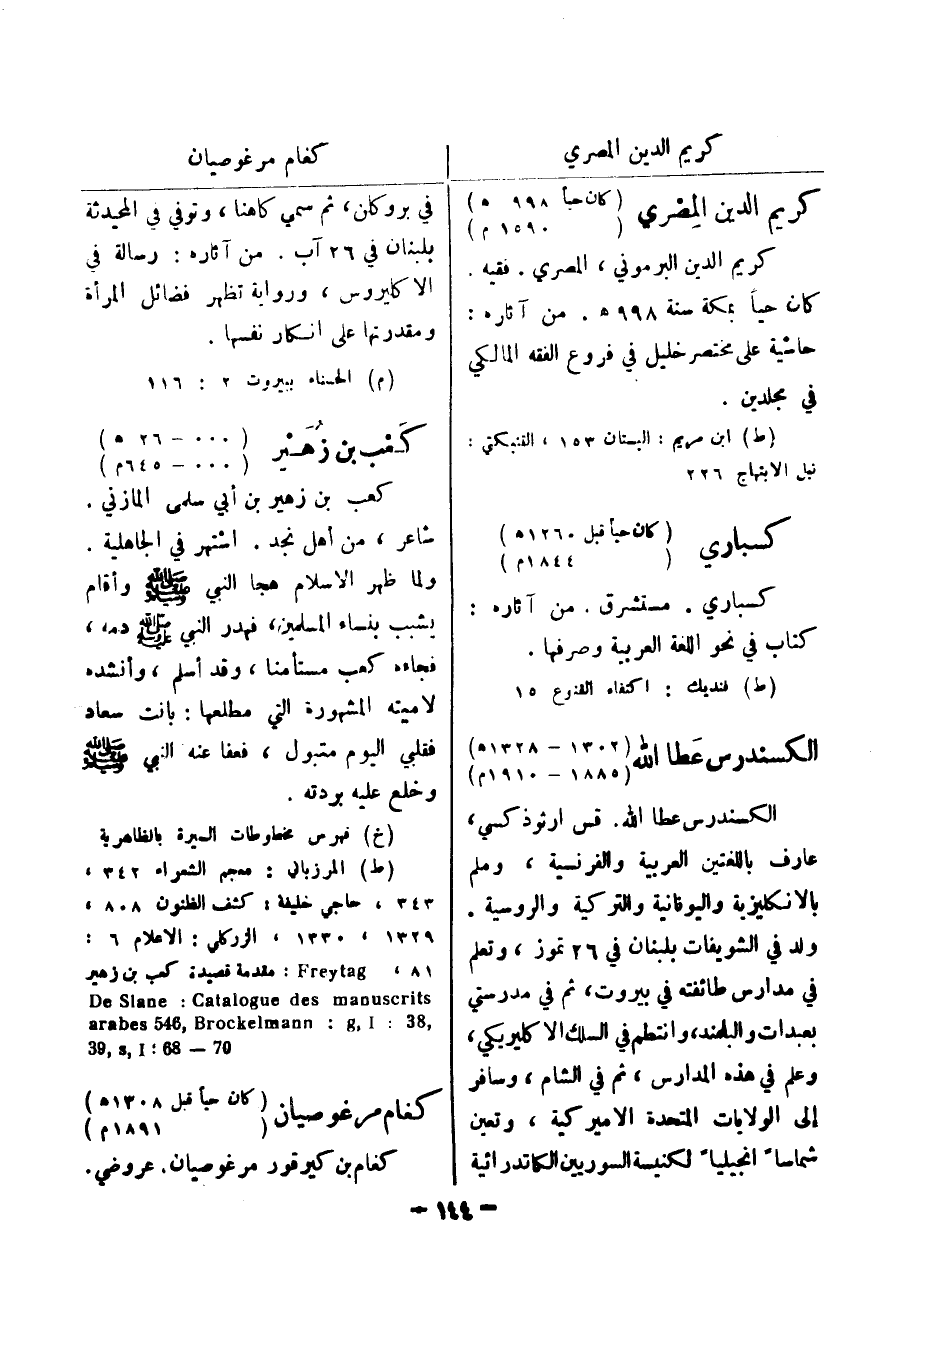 كريم الدين المصري
كفام مرغوصيان
كريم الدين المِصْري (كان حياً ٩٩٨ ه)
(١٥٩٠ م)
كريم الدين البرموني ، المصري . فقيه .
كان حياً بمكة سنة ٩٩٨ه . من آثاره :
حاشية على مختصر خليل في فروع الفقه المالكي
في مجلدين .
(ط) ابن مريم : البستان ١٥٣ ، التنبكتي :
نيل الابتهاج ٢٢٦
كسباري (كان حياً قبل ١٢٦٠ه)
(١٨٤٤م)
كسباري . مستشرق . من آثاره :
كتاب في نحو اللغة العربية وصرفها .
(ط) فنديك : اكتفاء القنوع ١٥
الكسندرس عَطا الله (١٣٠٢ – ١٣٢٨ه)
(١٨٨٥ – ١٩١٠م)
الكسندرس عطا الله. قس ارثوذكسي،
عارف باللغتين العربية والفرنسية ، وملم
بالانكليزية واليونانية والتركية والروسية .
ولد في الشويفات بلبنان في ٢٦ تموز ، وتعلم
في مدارس طائفته في بيروت، ثم في مدرستي
بعبدات والبلمند، وانتظم في السلك الاكليريكي،
وعلم في هذه المدارس ، ثم في الشام ، وسافر
إلى الولايات المتحدة الاميركية ، وتعين
شماساً انجيلياً لكنيسة السوريين الكاتدرائية
في بروكلن، ثم سمي كاهنا ، وتوفي في المحيدثة
بلبنان في ٢٦ آب . من آثاره : رسالة في
الاكليروس ، ورواية تظهر فضائل المرأة
ومقدرتها على انكار نفسها .
(م) الحسناء ببيروت ٢ : ١١٦
كَعْب بن زُهَيْر (٠٠٠ – ٢٦ ه)
(٠٠٠ – ٦٤٥م)
كعب بن زهير بن أبي سلمى المازني .
شاعر ، من أهل نجد . اشتهر في الجاهلية .
ولما ظهر الاسلام هجا النبي ﷺ وأقام
يشبب بنساء المسلمين، فهدر النبي ﷺ دمه ،
فجاءه كعب مستأمنا ، وقد أسلم ، وأنشده
لاميته المشهورة التي مطلعها : بانت سعاد
فقلبي اليوم متبول ، فعفا عنه النبي ﷺ
وخلع عليه بردته .
(خ) فهرس مخطوطات السيرة بالظاهرية
(ط) المرزباني : معجم الشعراء ٣٤٢ ،
٣٤٣ ، حاجي خليفة : كشف الظنون ٨٠٨ ،
١٣٢٩ ، ١٣٣٠ ، الزركلي : الاعلام ٦ :
٨١ ، Freytag : مقدمة قصيدة كعب بن زهير
De Slane : Catalogue des manuscrits
arabes 546, Brockelmann : g, I : 38,
39, s, I : 68 — 70
كفام مرغوصيان (كان حياً قبل ١٣٠٨ه)
(١٨٩١م)
كفام بن كيرقور مرغوصيان. عروضي.
– ١٤٤ –